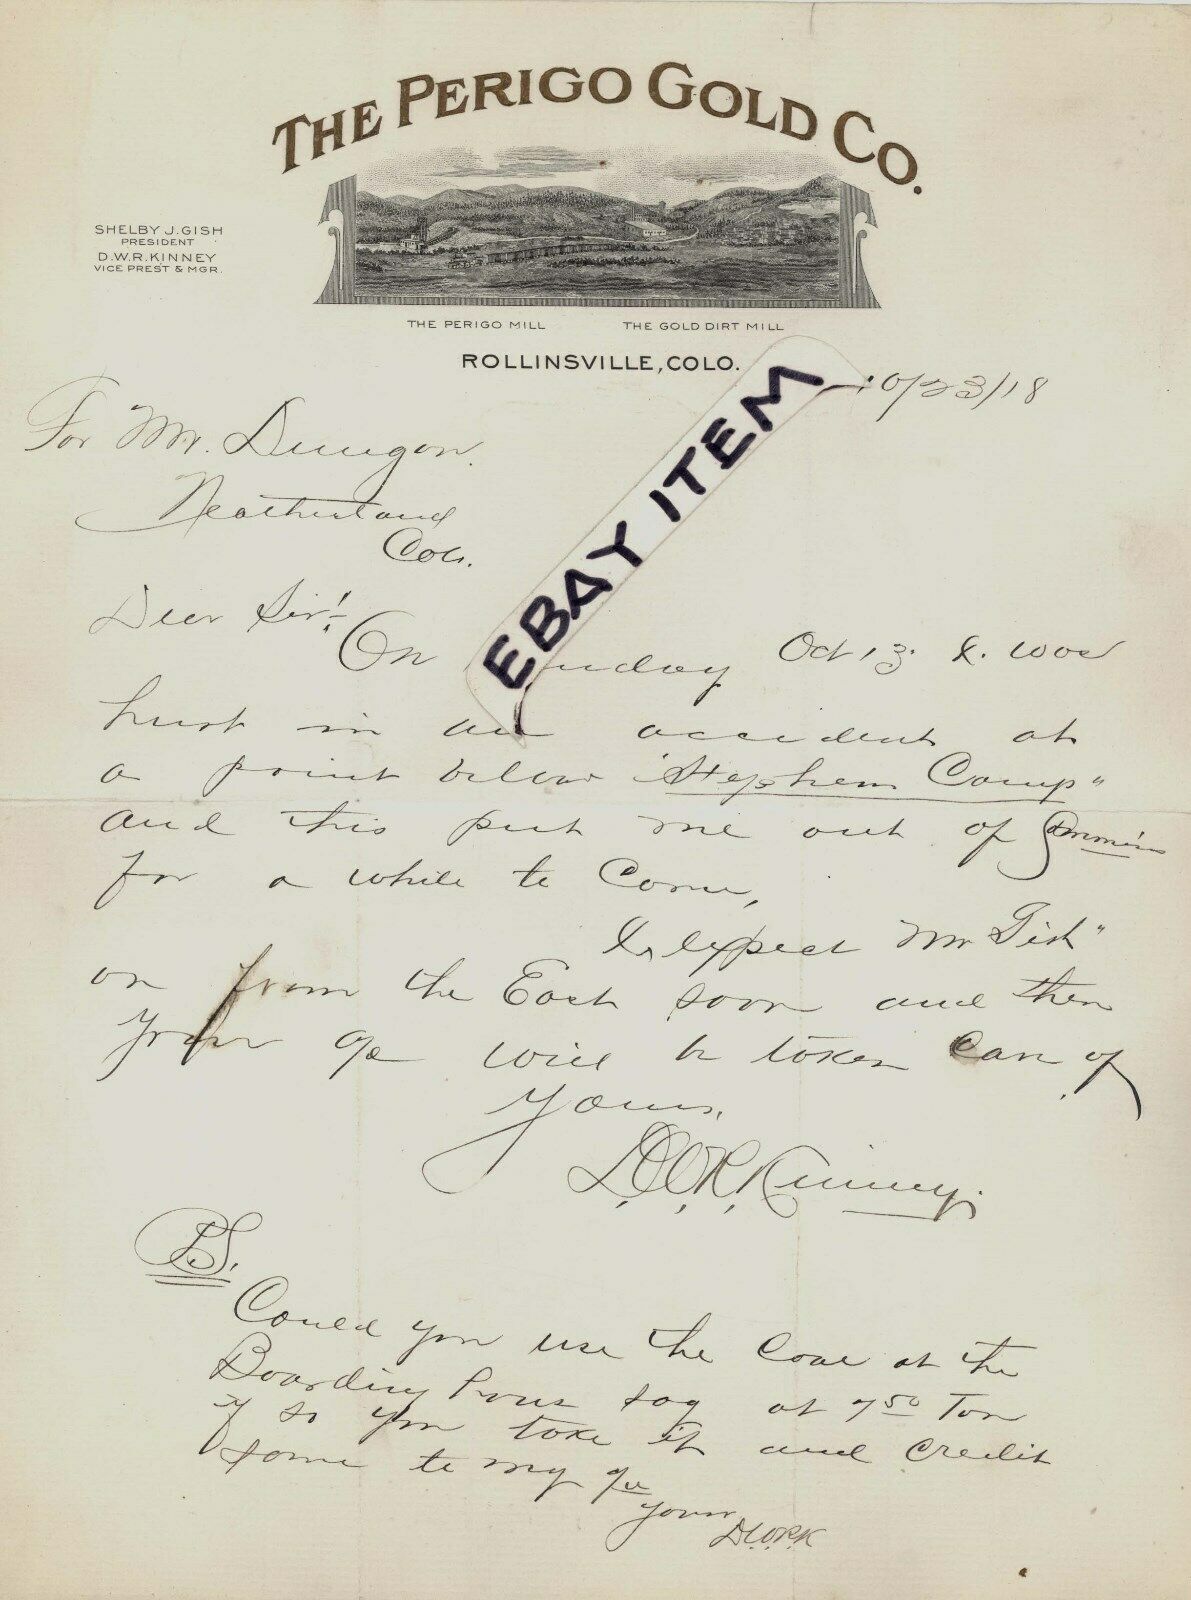 THE PERIGO GOLD CO.
SHELBY J. GISH
PRESIDENT
D.W.R. KINNEY
VICE PREST & MGR.
THE PERIGO MILL THE GOLD DIRT MILL
ROLLINSVILLE, COLO.
10/23/18
EBAY ITEM
For Mr. Dungan.
Neatherland
Colo.
Dear Sir!
On Sunday Oct 13. I. was
hurt in an accident at
a point below "Stephens Camp"
and this put me out of
for a while to come,
I, expect Mr Gish
on from the East soon and then
your a/c will be taken care of.
Yours,
D.W.R. Kinney.
P.S.
Could you use the coal at the
Boarding House say at 7 50 Ton
if so you take it and credit
same to my a/c
Yours
D.W.R.K